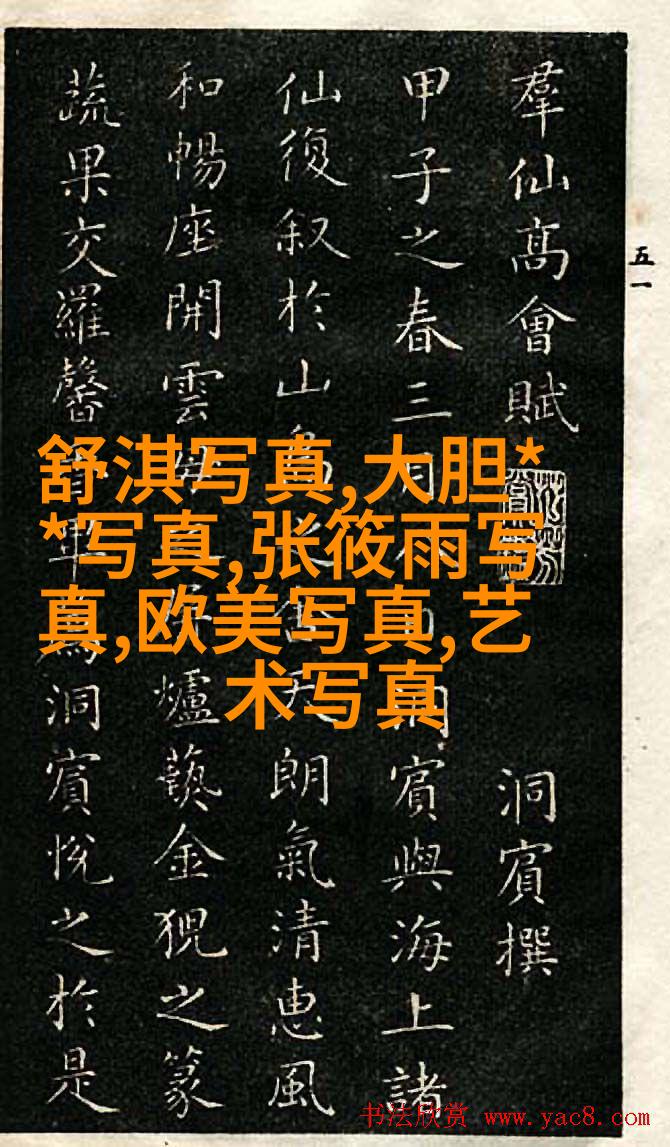 羣仙高會賦
洞賔撰
甲子之春三月
洞賔與海上諸
仙復叙於山
天朗氣清惠風
和暢座開雲
爐藝金猊之篆
蔬果交羅馨
洞賔悅之於是
五一
舒淇写真,大胆*
*写真,张筱雨写
真,欧美写真,艺
术写真
书法欣赏 www.yac8.com